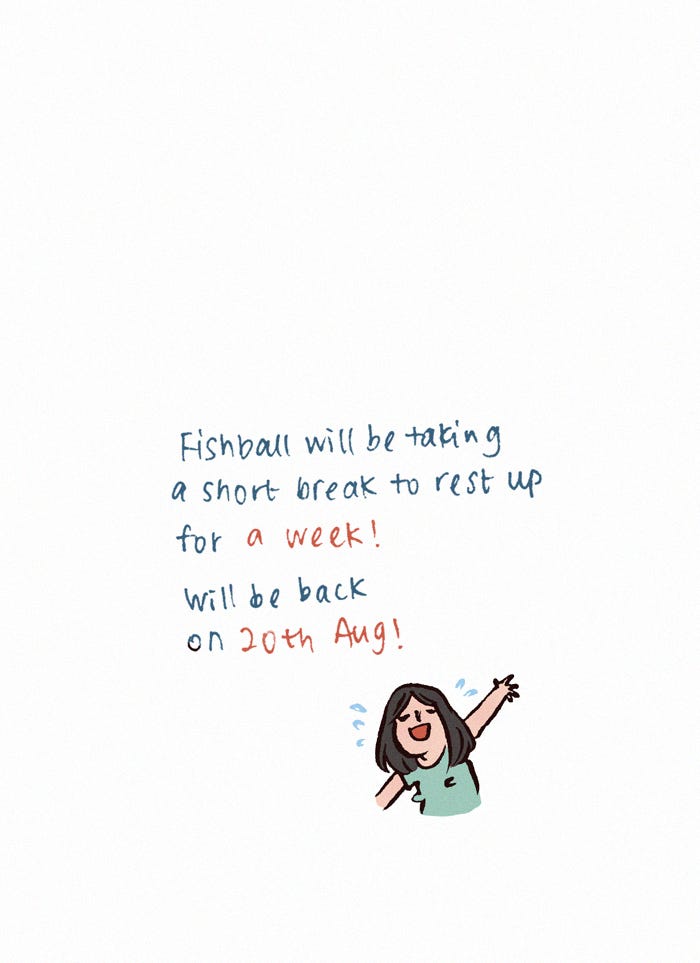 Fishball will be taking
a short break to rest up
for a week!
Will be back
on 20th Aug!